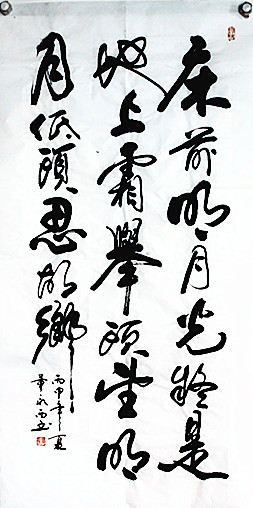 床前明月光疑是
地上霜舉頭望明
月低頭思故鄉
丙申年夏